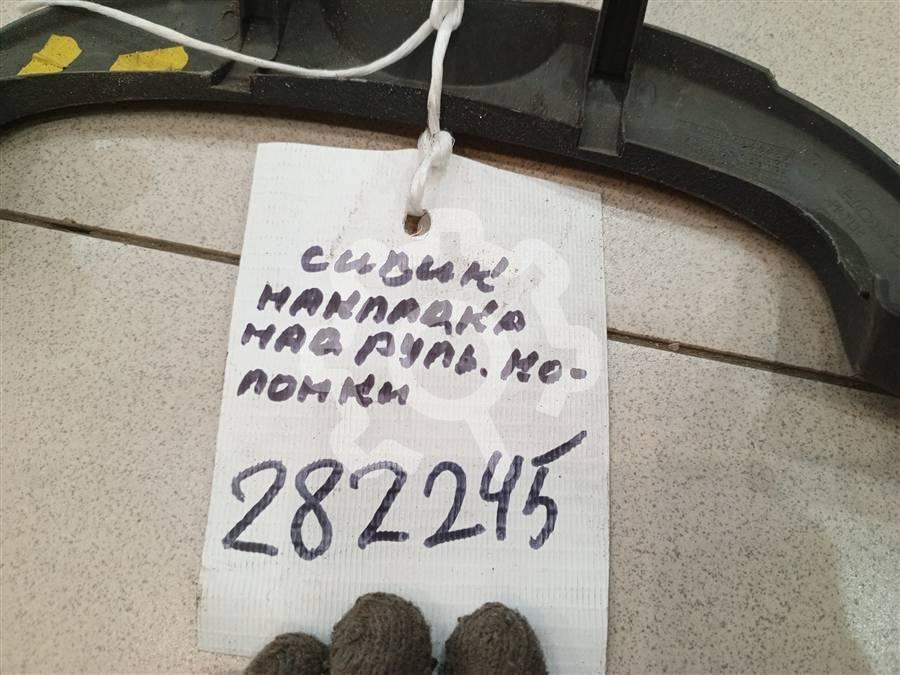 СИВИК
НАКЛАДКА
НАД РУЛЬ. КО-
ЛОНКИ
282245